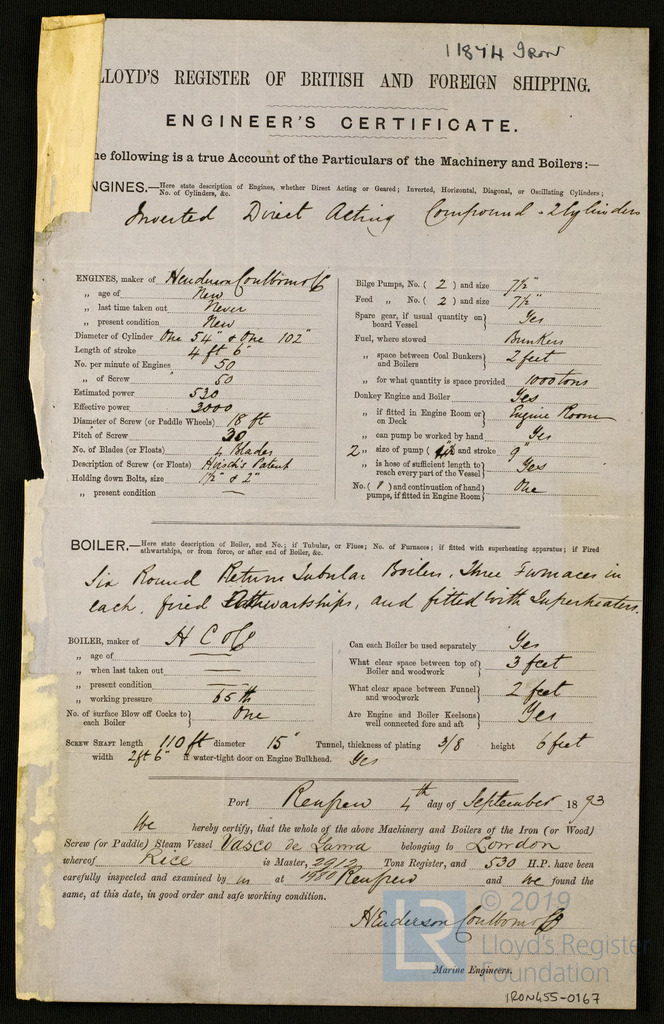 11874 Iron
LLOYD'S REGISTER OF BRITISH AND FOREIGN SHIPPING.
ENGINEER'S CERTIFICATE.
he following is a true Account of the Particulars of the Machinery and Boilers:—
NGINES.—Here state description of Engines, whether Direct Acting or Geared; Inverted, Horizontal, Diagonal, or Oscillating Cylinders;
No. of Cylinders, &c.
Inverted Direct Acting Compound - 2 Cylinders
ENGINES, maker of Henderson Coulborn & Co
„ age of New
„ last time taken out Never
„ present condition New
Diameter of Cylinder One 54" & One 102"
Length of stroke 4 ft 6"
No. per minute of Engines 50
„ of Screw 50
Estimated power 530
Effective power 3000
Diameter of Screw (or Paddle Wheels) 18 ft
Pitch of Screw 30
No. of Blades (or Floats) 4 Blades
Description of Screw (or Floats) Hirsch's Patent
Holding down Bolts, size 1½" & 2"
„ present condition —
Bilge Pumps, No. ( 2 ) and size 7½"
Feed „ No. ( 2 ) and size 7½"
Spare gear, if usual quantity on board Vessel } Yes
Fuel, where stowed Bunkers
„ space between Coal Bunkers and Boilers } 2 feet
„ for what quantity is space provided 1000 tons
Donkey Engine and Boiler Yes
„ if fitted in Engine Room or on Deck } Engine Room
„ can pump be worked by hand Yes
2 „ size of pump ( ) and stroke 9"
„ is hose of sufficient length to reach every part of the Vessel } Yes
No. ( 1 ) and continuation of hand pumps, if fitted in Engine Room } One
BOILER.—Here state description of Boiler, and No.; if Tubular, or Flues; No. of Furnaces; if fitted with superheating apparatus; if Fired
athwartships, or from force, or after end of Boiler, &c.
Six Round Return Tubular Boilers, Three Furnaces in
each, fired Athwartships, and fitted with Superheaters.
BOILER, maker of H C & Co
„ age of —
„ when last taken out —
„ present condition —
„ working pressure 65 lb
No. of surface Blow off Cocks to each Boiler } One
Can each Boiler be used separately Yes
What clear space between top of Boiler and woodwork } 3 feet
What clear space between Funnel and woodwork } 2 feet
Are Engine and Boiler Keelsons well connected fore and aft } Yes
SCREW SHAFT length 110 ft diameter 15" Tunnel, thickness of plating 3/8 height 6 feet
width 2ft 6" if water-tight door on Engine Bulkhead. Yes
Port Renfrew 4th day of September 1873
We hereby certify, that the whole of the above Machinery and Boilers of the Iron (or Wood)
Screw (or Paddle) Steam Vessel Vasco de Gama belonging to London
whereof Rice is Master, 2912 Tons Register, and 530 H.P. have been
carefully inspected and examined by us at Renfrew and we found the
same, at this date, in good order and safe working condition.
Henderson Coulborn & Co
Marine Engineers.
LR © 2019
Lloyd's Register
Foundation
IRON455-0167